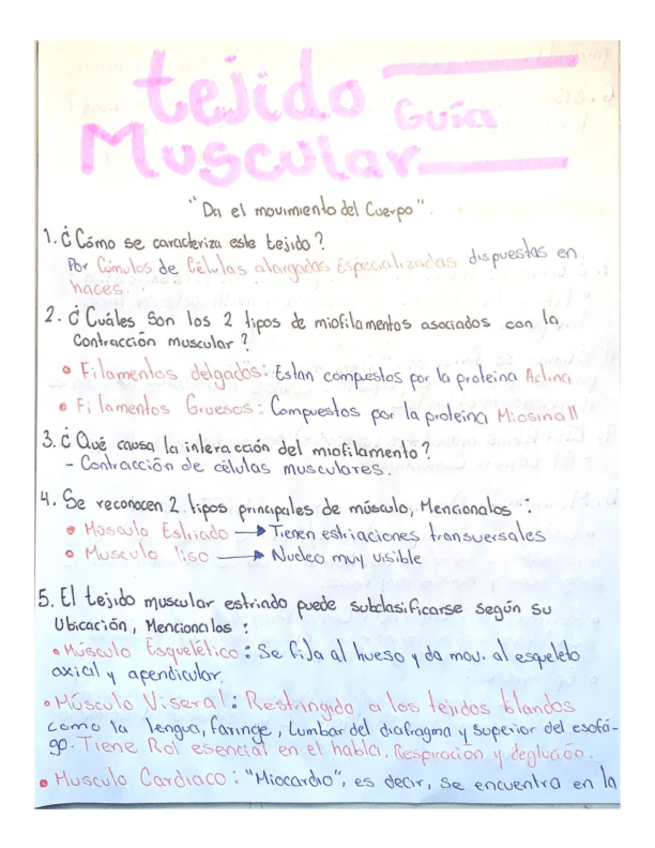 tejido
Guía
Muscular
"Da el movimiento del Cuerpo".
1. ¿Cómo se caracteriza este tejido?
Por Cúmulos de Células alargadas Especializadas dispuestas en
haces.
2. ¿Cuáles Son los 2 tipos de miofilamentos asociados con la
Contracción muscular?
• Filamentos delgados: Estan compuestos por la proteina Actina
• Filamentos Gruesos: Compuestos por la proteina Miosina II
3. ¿Qué causa la interacción del miofilamento?
- Contracción de células musculares.
4. Se reconocen 2 tipos principales de músculo, Mencionalos:
• Músculo Estriado → Tienen estriaciones transversales
• Musculo liso → Nucleo muy visible
5. El tejido muscular estriado puede subclasificarse según su
Ubicación, Mencionalos:
• Músculo Esquelético: Se fija al hueso y da mov. al esqueleto
axial y apendicular.
• Músculo Viseral: Restringido a los tejidos blandos
como la lengua, faringe, Lumbar del diafragma y Superior del esofá-
go. Tiene Rol esencial en el habla, Respiración y deglución.
• Musculo Cardiaco: "Miocardio", es decir, se encuentra en la